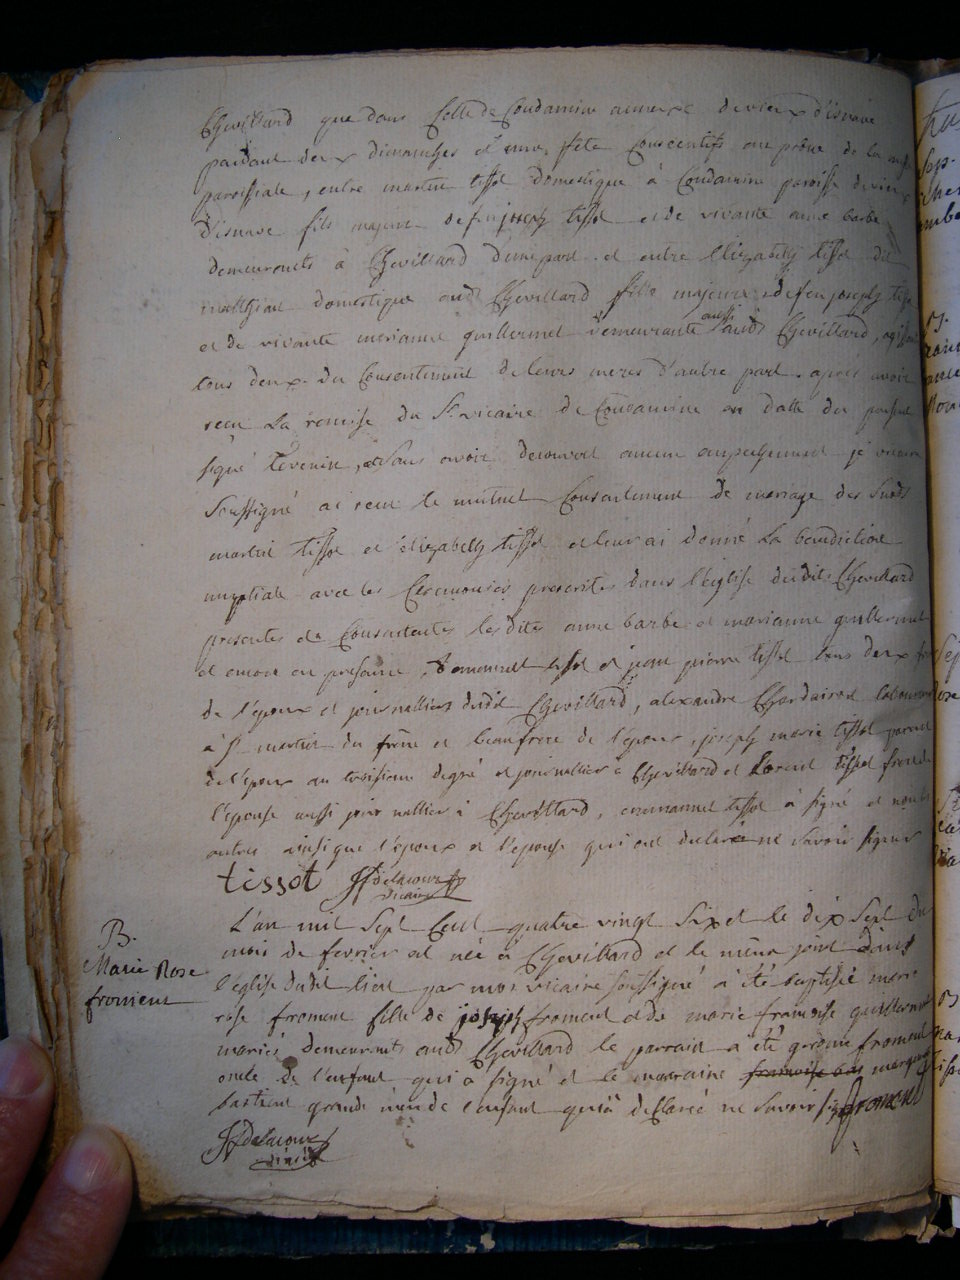 Chevillard que dans Celle de Condamine annexe de vieux d'isnave
pandant deux dimanches et une fête Consecutifs au prône de la
paroissiale, entre martin tissot domestique à Condamine paroisse de vieux
d'isnave fils majeur de feu joseph tissot et de vivante anne barbe
demeurants à Chevillard d'une part et entre Elizabeth tissot dit
domestique aud Chevillard fille majeure de feu joseph tissot
et de vivante marianne guillermet demeurante aussi aud Chevillard,
tous deux du Consentement de leurs meres d'autre part. après avoir
recu La remise du Sr vicaire de Condamine en datte du
signé Tevenin, et sans avoir decouvert aucun empechement je vicaire
Soussigné ai recu le mutuel Consentement de mariage des Susds
martin tissot et Elizabeth tissot et leur ai donné La benediction
nuptiale avec les Ceremonies prescrites dans l'église dudit Chevillard
presentes et Consentantes les dites anne barbe et marianne guillermet
et encore en presence d'emanuel tissot et jean pierre tissot tous deux
de l'epoux et journalliers dudit Chevillard, alexandre laboureur
à St martin du frêne et beaufrere de l'epoux, joseph marie tissot parent
de l'epoux au troisieme degré et journallier à Chevillard et tissot frere de
l'épouse aussi journallier à Chevillard, emmanuel tissot à signé et non les
autres ainsi que l'époux et l'épouse qui ont declaré ne savoir signer
tissot JJ delacour
vicaire
L'an mil Sept Cent quatre vingt Six et le dix Sept du
mois de fevrier est née à Chevillard et le même jour dans
l'église dudit lieu par moi vicaire soussigné à été baptisée marie
rose froment fille de joseph froment et de marie francoise guillermet
mariés demeurants aud Chevillard le parrain a été froment
oncle de l'enfant qui à signé et la marraine francoise
grande mere de l'enfant qui à declaré ne savoir froment
JJ delacour
vicaire
B.
Marie Rose
froment